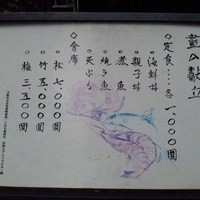 昼の献立
定食……各一、〇〇〇円
・海鮮丼
・親子丼
・煮魚
・焼き魚
・天ぷら
会席
・松 七、〇〇〇円
・竹 五、〇〇〇円
・梅 三、五〇〇円